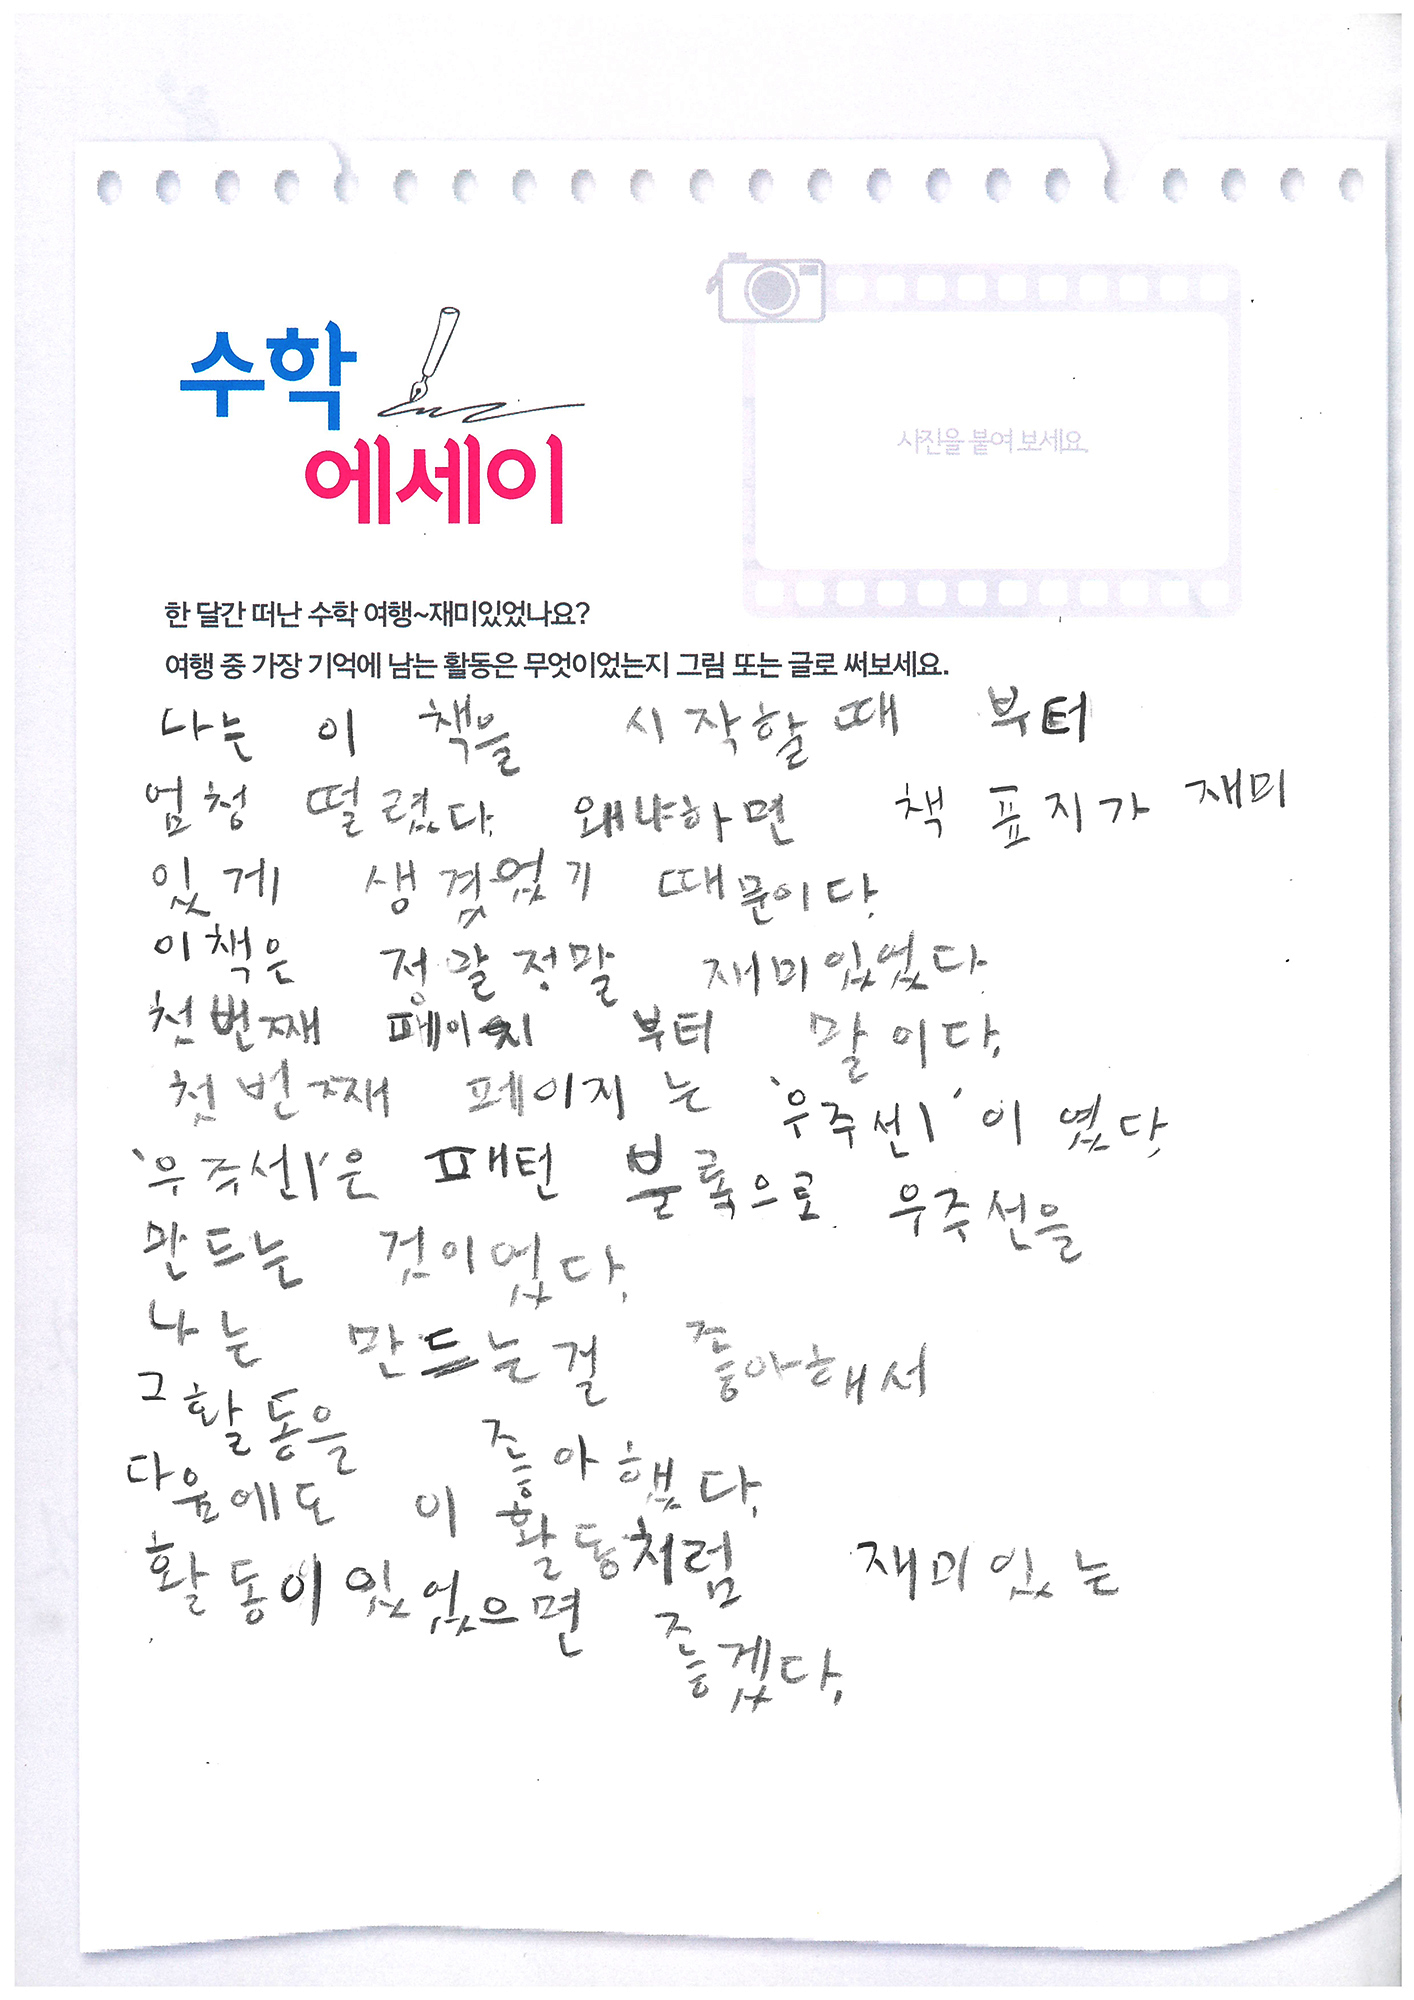 수학
에세이
사진을 붙여 보세요.
한 달간 떠난 수학 여행~재미있었나요?
여행 중 가장 기억에 남는 활동은 무엇이었는지 그림 또는 글로 써보세요.
나는 이 책을 시작할때 부터
엄청 떨렸다. 왜냐하면 책 표지가 재미
있게 생겼었기 때문이다.
이책은 정말정말 재미있었다.
첫번째 페이지 부터 말이다.
첫번째 페이지는 '우주선1'이 였다.
'우주선1'은 패턴 블록으로 우주선을
만드는 것이였다.
나는 만드는걸 좋아해서
그 활동을 좋아했다.
다음에도 이 활동처럼 재미있는
활동이있었으면 좋겠다.